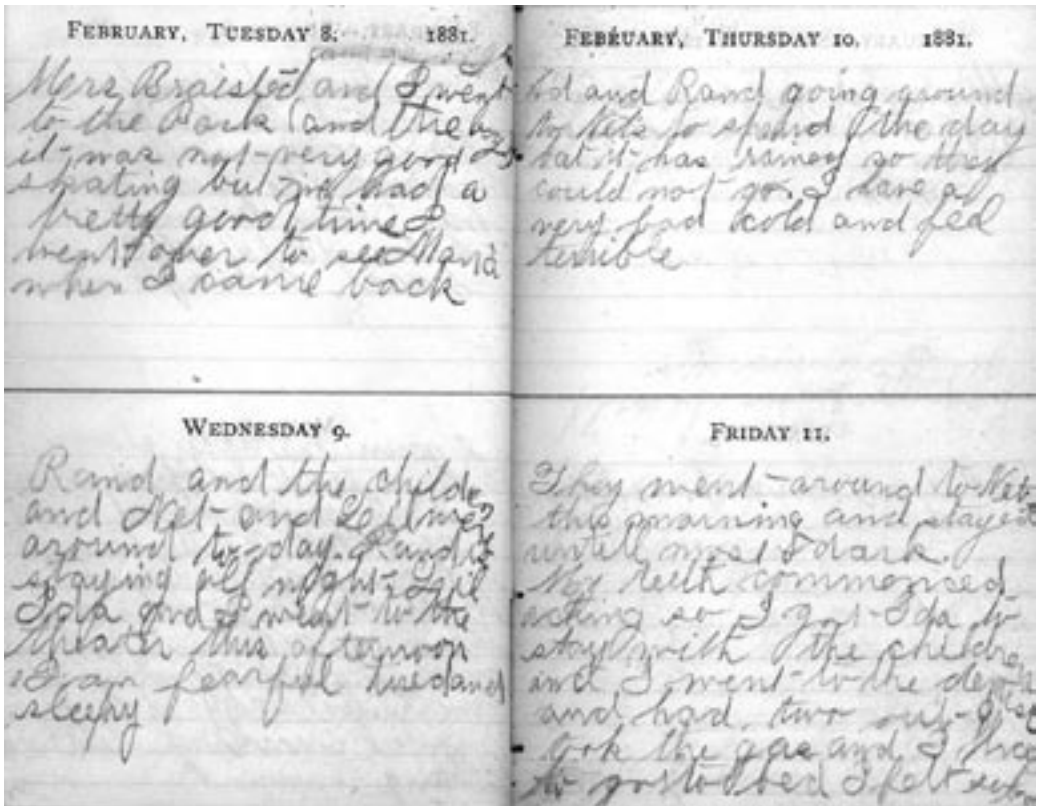 FEBRUARY, TUESDAY 8. 1881.
Mers Braisted and I went
to the Park and the
it was not very good
skating but we had a
betty good time I
went over to see Mand
when I came back
WEDNESDAY 9.
Rand and the childe
and Net and Lei were
around to day. Rand is
staying all night Lil
Ida and I went to the
theater this afternoon
I am fearful tired and
sleepy
FEBRUARY, THURSDAY 10. 1881.
Ed and Rand going around
to Nets to spend the day
but it has rainey so they
could not go. I have a
very bad cold and feel
terrible
FRIDAY 11.
They went around to Net
this morning and stayed
untill most dark.
My teeth commenced
acking so I got Ida to
stay with the childre
and I went to the den
and had two out
took the gas and I
to go to bed I felt